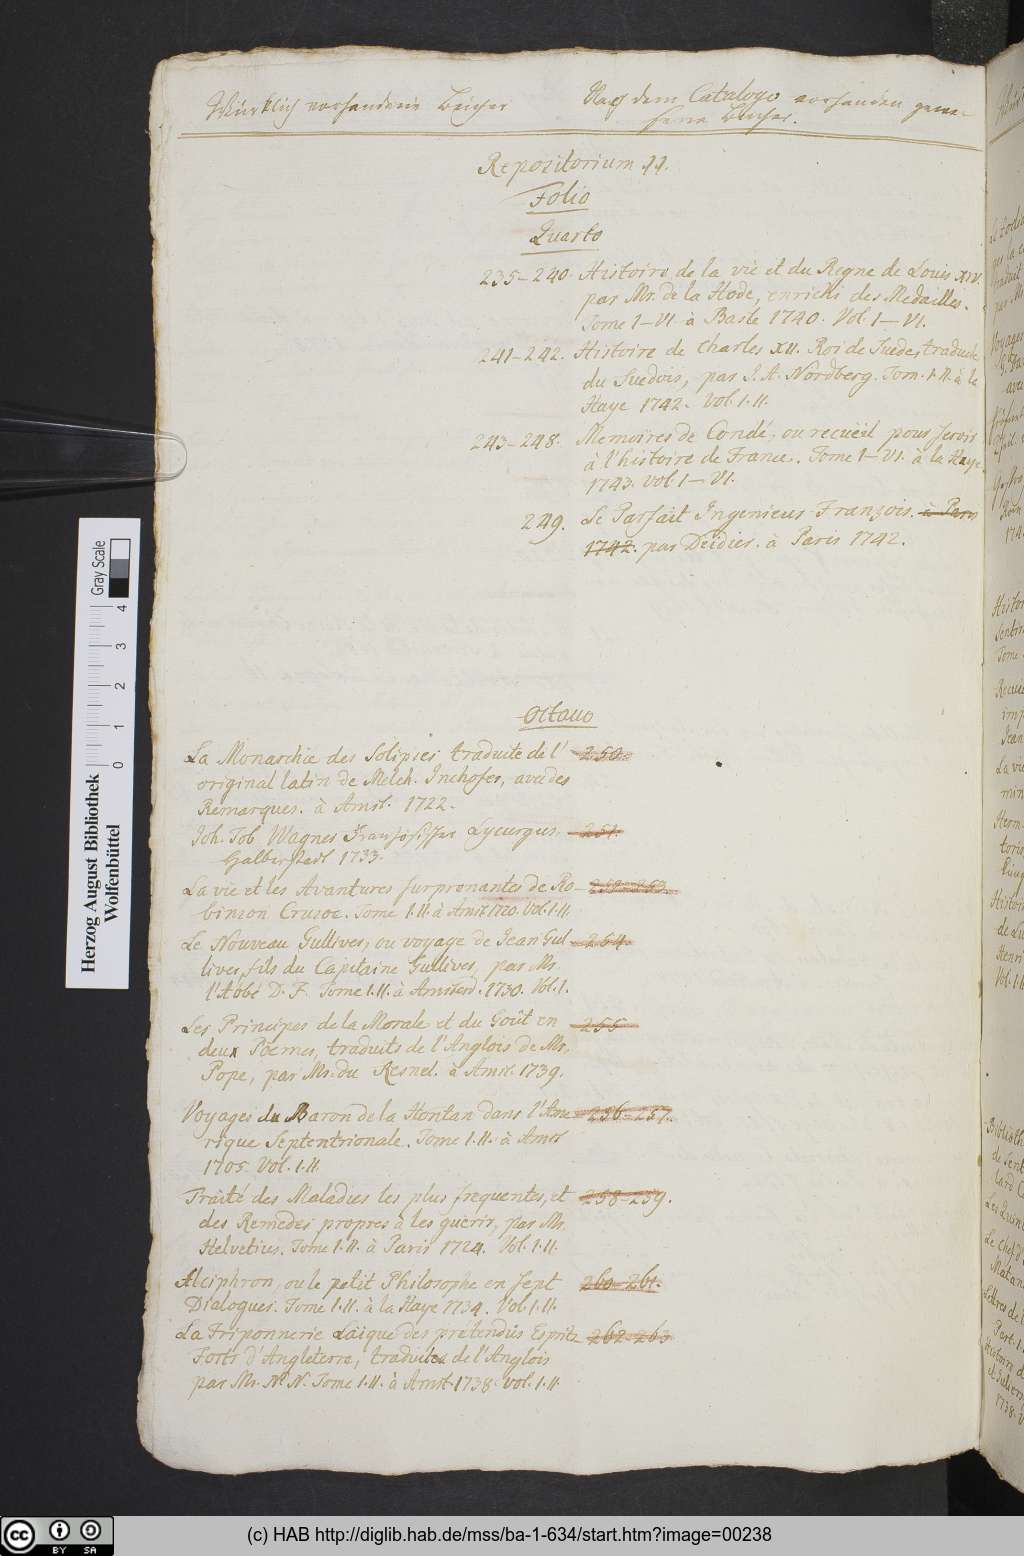 Würklich vorhandene Bücher
Nach dem Catalogo vorhanden gewe-
sene Bücher.
Repositorium 11.
Folio
Quarto
235-240. Histoire de la vie et du Regne de Louis XIV.
par Mr. de la Hode, enrichi des Medailles.
Tome I-VI. à Basle 1740. Vol. I-VI.
241-242. Histoire de Charles XII. Roi de Suede, traduite
du Suedois, par J. A. Nordberg. Tom. I. II. à la
Haye 1742. Vol. I. II.
243-248. Memoires de Condé, ou recueil pour servir
à l'histoire de France. Tome I-VI. à la Haye.
1743. vol. I-VI.
249. Le Parfait Ingenieur François. à Paris
1742. par Deidier. à Paris 1742.
Octavo
La Monarchie des Solipses traduite de l' 250.
original latin de Melch. Inchofer, avec des
Remarques. à Amst. 1722.
Joh. Tob. Wagner Französischer Lycurgus. 251.
Halberstadt 1733.
La vie et les Avantures surprenantes de Ro- 252-253.
binson Crusoe. Tome I. II. à Amst. 1720. Vol. I. II.
Le Nouveau Gulliver, ou voyage de Jean Gul- 254.
liver, fils du Capitaine Gulliver, par Mr.
l'Abbé D. F. Tome I. II. à Amsterd. 1730. Vol. I.
Les Principes de la Morale et du Goût en 255
deux Poemes, traduits de l'Anglois de Mr.
Pope, par Mr. du Resnel. à Amst. 1739.
Voyages du Baron de la Hontan dans l'Ame- 256-257.
rique Septentrionale. Tome I. II. à Amst
1705. Vol. I. II.
Traité des Maladies les plus frequentes, et 258-259.
des Remedes propres à les guerir, par Mr.
Helvetius. Tome I. II. à Paris 1724. Vol. I. II.
Alciphron, ou le petit Philosophe en sept 260-261.
Dialogues. Tome I. II. à la Haye 1734. Vol. I. II.
La Friponnerie Laique des prétendus Esprits 262-263
Forts d'Angleterre, traduites de l'Anglois
par Mr. N. N. Tome I. II. à Amst. 1738. vol. I. II.
Herzog August Bibliothek
Wolfenbüttel
Gray Scale
0 1 2 3 4
cc BY SA
(c) HAB http://diglib.hab.de/mss/ba-1-634/start.htm?image=00238